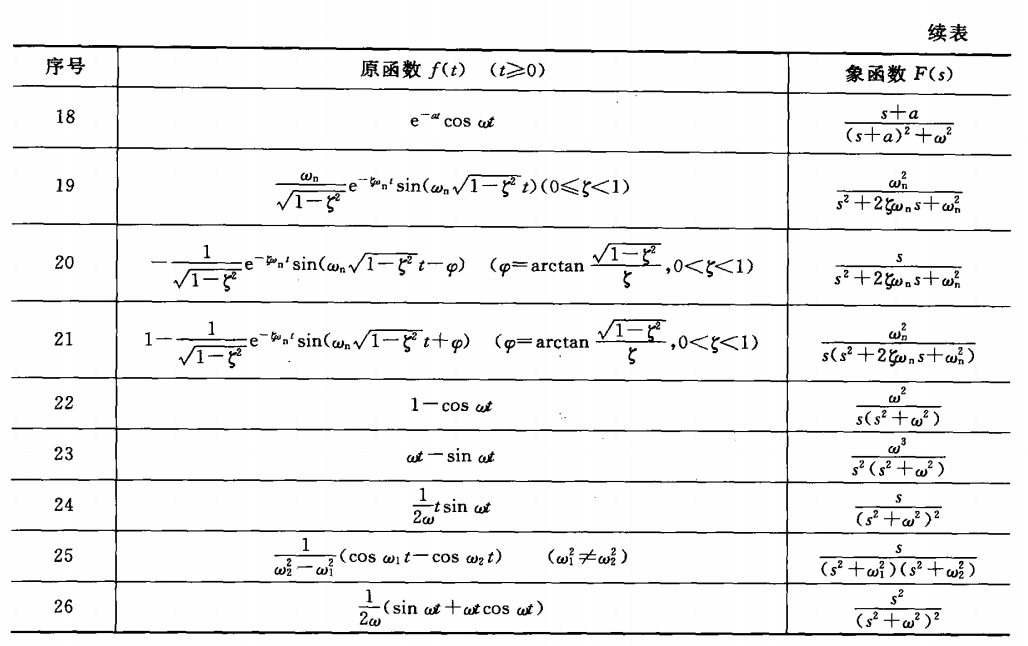 续表
序号 原函数 f(t) (t≥0) 象函数 F(s)
18 e^{-at} cos ωt \frac{s+a}{(s+a)^2+ω^2}
19 \frac{ω_n}{\sqrt{1-ζ^2}}e^{-ζω_n t}sin(ω_n\sqrt{1-ζ^2}t)(0≤ζ<1) \frac{ω_n^2}{s^2+2ζω_n s+ω_n^2}
20 -\frac{1}{\sqrt{1-ζ^2}}e^{-ζω_n t}sin(ω_n\sqrt{1-ζ^2}t-φ) (φ=arctan\frac{\sqrt{1-ζ^2}}{ζ},0<ζ<1) \frac{s}{s^2+2ζω_n s+ω_n^2}
21 1-\frac{1}{\sqrt{1-ζ^2}}e^{-ζω_n t}sin(ω_n\sqrt{1-ζ^2}t+φ) (φ=arctan\frac{\sqrt{1-ζ^2}}{ζ},0<ζ<1) \frac{ω_n^2}{s(s^2+2ζω_n s+ω_n^2)}
22 1-cos ωt \frac{ω^2}{s(s^2+ω^2)}
23 ωt-sin ωt \frac{ω^3}{s^2(s^2+ω^2)}
24 \frac{1}{2ω}tsin ωt \frac{s}{(s^2+ω^2)^2}
25 \frac{1}{ω_2^2-ω_1^2}(cos ω_1 t-cos ω_2 t) (ω_1^2≠ω_2^2) \frac{s}{(s^2+ω_1^2)(s^2+ω_2^2)}
26 \frac{1}{2ω}(sin ωt+ωtcos ωt) \frac{s^2}{(s^2+ω^2)^2}